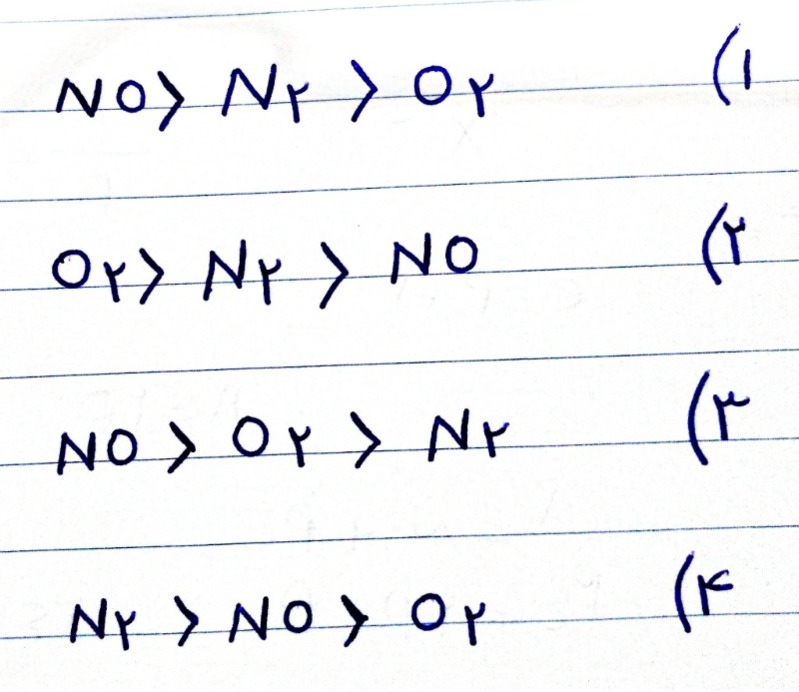 ۱) NO > N۲ > O۲
۲) O۲ > N۲ > NO
۳) NO > O۲ > N۲
۴) N۲ > NO > O۲